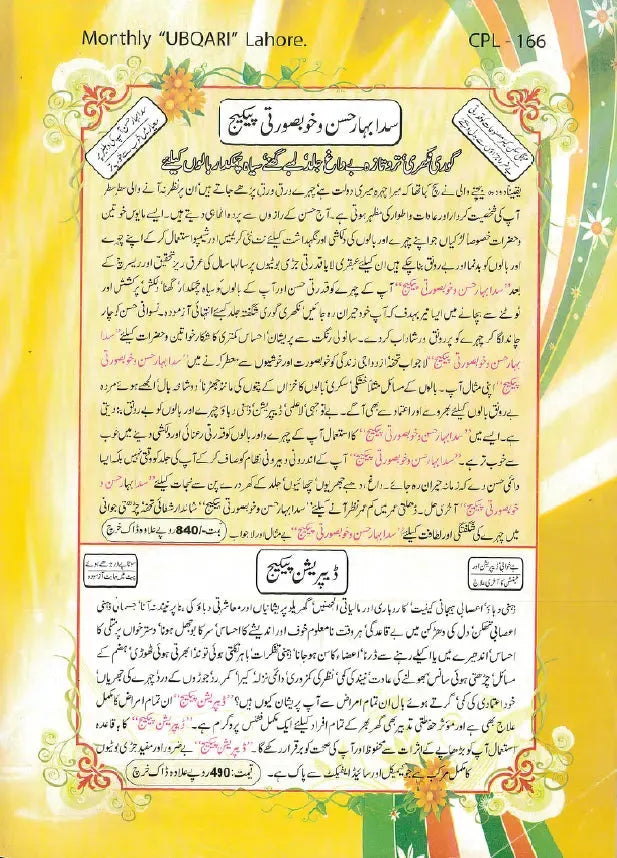 Monthly "UBQARI" Lahore.
CPL - 166
سدا بہار حسن و خوبصورتی پیکیج
گوری نکھری تروتازہ بے داغ جلد لمبے گھنے سیاہ چمکدار بالوں کیلئے
یقیناً دودھ بیچنے والی نے سچ کہا تھا کہ میرا چہرہ میری دولت ہے چہرے ورق ورق پڑھے جاتے ہیں ان پر نظر نہ آنے والی سطر سطر
آپ کی شخصیت کردار اور عادات و اطوار کی مظہر ہوتی ہے۔ آج حسن کے رازوں سے پردہ اٹھا ہی دیتے ہیں۔ ایسے مایوس خواتین
وحضرات خصوصاً لڑکیاں جو اپنے چہرے اور بالوں کی دلکشی اور نگہداشت کیلئے نت نئی کریمیں اور شیمپو استعمال کر کے اپنے چہرے
اور بالوں کو بدنما اور بے رونق بنا چکے ہیں ان کیلئے عبقری لایا قدرتی جڑی بوٹیوں پر سالہا سال کی عرق ریز تحقیق اور ریسرچ کے
بعد "سدا بہار حسن و خوبصورتی پیکیج" آپ کے چہرے کو قدرتی حسن اور آپ کے بالوں کو سیاہ چمکدار' گھنا' دلکش پرکشش اور
ٹوٹنے سے بچانے میں ایسا تیر بہدف کہ آپ خود حیران رہ جائیں' نکھری گوری شگفتہ جلد کیلئے انتہائی آزمودہ۔ نسوانی حسن کو چار
چاند لگا کر چہرے کو پر رونق و شاداب کر دے۔ سانولی رنگت سے پریشان' احساس کمتری کا شکار خواتین و حضرات کیلئے "سدا
بہار حسن و خوبصورتی پیکیج" لاجواب تحفہ' ازدواجی زندگی کو خوبصورت اور خوشیوں سے معطر کرنے میں "سدا بہار حسن و خوبصورتی
پیکیج" اپنی مثال آپ۔ بالوں کے مسائل مثلاً خشکی' سکری' بالوں کا خزاں کے پتوں کی مانند جھڑنا' دو شاخہ بال' الجھے ہوئے مردہ
بے رونق بالوں کیلئے بھروسے اور اعتماد سے بھی آگے۔ بے توجہی' لاعلمی' ڈیپریشن' ذہنی دباؤ چہرے اور بالوں کو بے رونق کر دیتی
ہے۔ ایسے میں "سدا بہار حسن و خوبصورتی پیکیج" کا استعمال آپ کے چہرے اور بالوں کو قدرتی رعنائی اور دلکشی دینے میں خوب
سے خوب تر ہے۔ "سدا بہار حسن و خوبصورتی پیکیج" آپ کے اندرونی و بیرونی نظام کو صاف کر کے آپ کی جلد کو وقتی نہیں بلکہ ایسا
دائمی حسن دے کہ زمانہ حیران رہ جائے۔ داغ' دھبے' جھریوں' چھائیوں' جلد کے کھردرے پن سے نجات کیلئے "سدا بہار حسن و
خوبصورتی پیکیج" آخری حل۔ ڈھلتی عمر میں کم عمر نظر آنے کیلئے "سدا بہار حسن و خوبصورتی پیکیج" شاندار شفائی تحفہ' چڑھتی جوانی
میں چہرے کی شگفتگی اور لطافت کیلئے "سدا بہار حسن و خوبصورتی پیکیج" بے مثال اور لاجواب
قیمت -/840 روپے علاوہ ڈاک خرچ
ڈیپریشن پیکیج
بے خوابی' ڈیپریشن اور
ٹینشن کا آخری علاج
ذہنی دباؤ' اعصابی ہیجانی کیفیت' کاروباری اور مالیاتی الجھنیں' گھریلو پریشانیاں اور معاشرتی دباؤ کی بنا پر نیند نہ آنا' جسمانی ذہنی
اعصابی تھکن' دل کی دھڑکن میں بے قاعدگی' ہر وقت نامعلوم خوف اور اندیشے کا احساس' سر کا بوجھل ہونا' دسترخوان پر متلی کا
احساس' اندھیرے میں یا اکیلے رہنے سے ڈرنا' اعضاء کا سن ہو جانا' ذہنی تفکرات' باہر نکلتی ہوئی توند' ابھرتی ہوئی ٹھوڑی' ہضم کے
مسائل' چڑھتی ہوئی سانس' بھولنے کی عادت' نیند کی کمی' نظر کی کمزوری' دائمی نزلہ' کیرا' کمر درد' جوڑوں کے درد' چہرے کی جھریاں'
خود اعتمادی کی کمی' گرتے ہوئے بال ان تمام امراض سے آپ پریشان کیوں ہیں؟ "ڈیپریشن پیکیج" ان تمام امراض کا مکمل
علاج بھی ہے اور مؤثر حفاظتی تدبیر بھی' گھر بھر کے تمام افراد کیلئے ایک مکمل فٹنس پروگرام ہے۔ "ڈیپریشن پیکیج" کا باقاعدہ
استعمال آپ کو بڑھاپے کے اثرات سے محفوظ اور آپ کی صحت کو برقرار رکھے گا۔ "ڈیپریشن پیکیج" بے ضرر اور مفید جڑی بوٹیوں
کا مکمل مرکب ہے جو کیمیکل اور سائیڈ ایفیکٹ سے پاک ہے۔
قیمت: 490 روپے علاوہ ڈاک خرچ